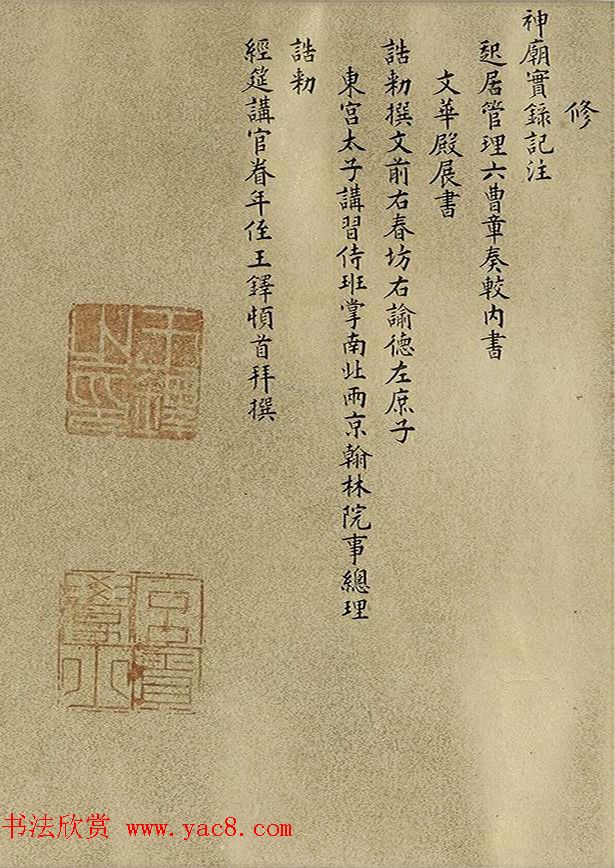 修
神廟實錄記注
起居管理六曹章奏較内書
文華殿展書
誥勑撰文前右春坊右諭德左庶子
東宮太子講習侍班掌南北兩京翰林院事總理
誥勑
經筵講官眷年侄王鐸頓首拜撰
王鐸之印
书法欣赏 www.yac8.com